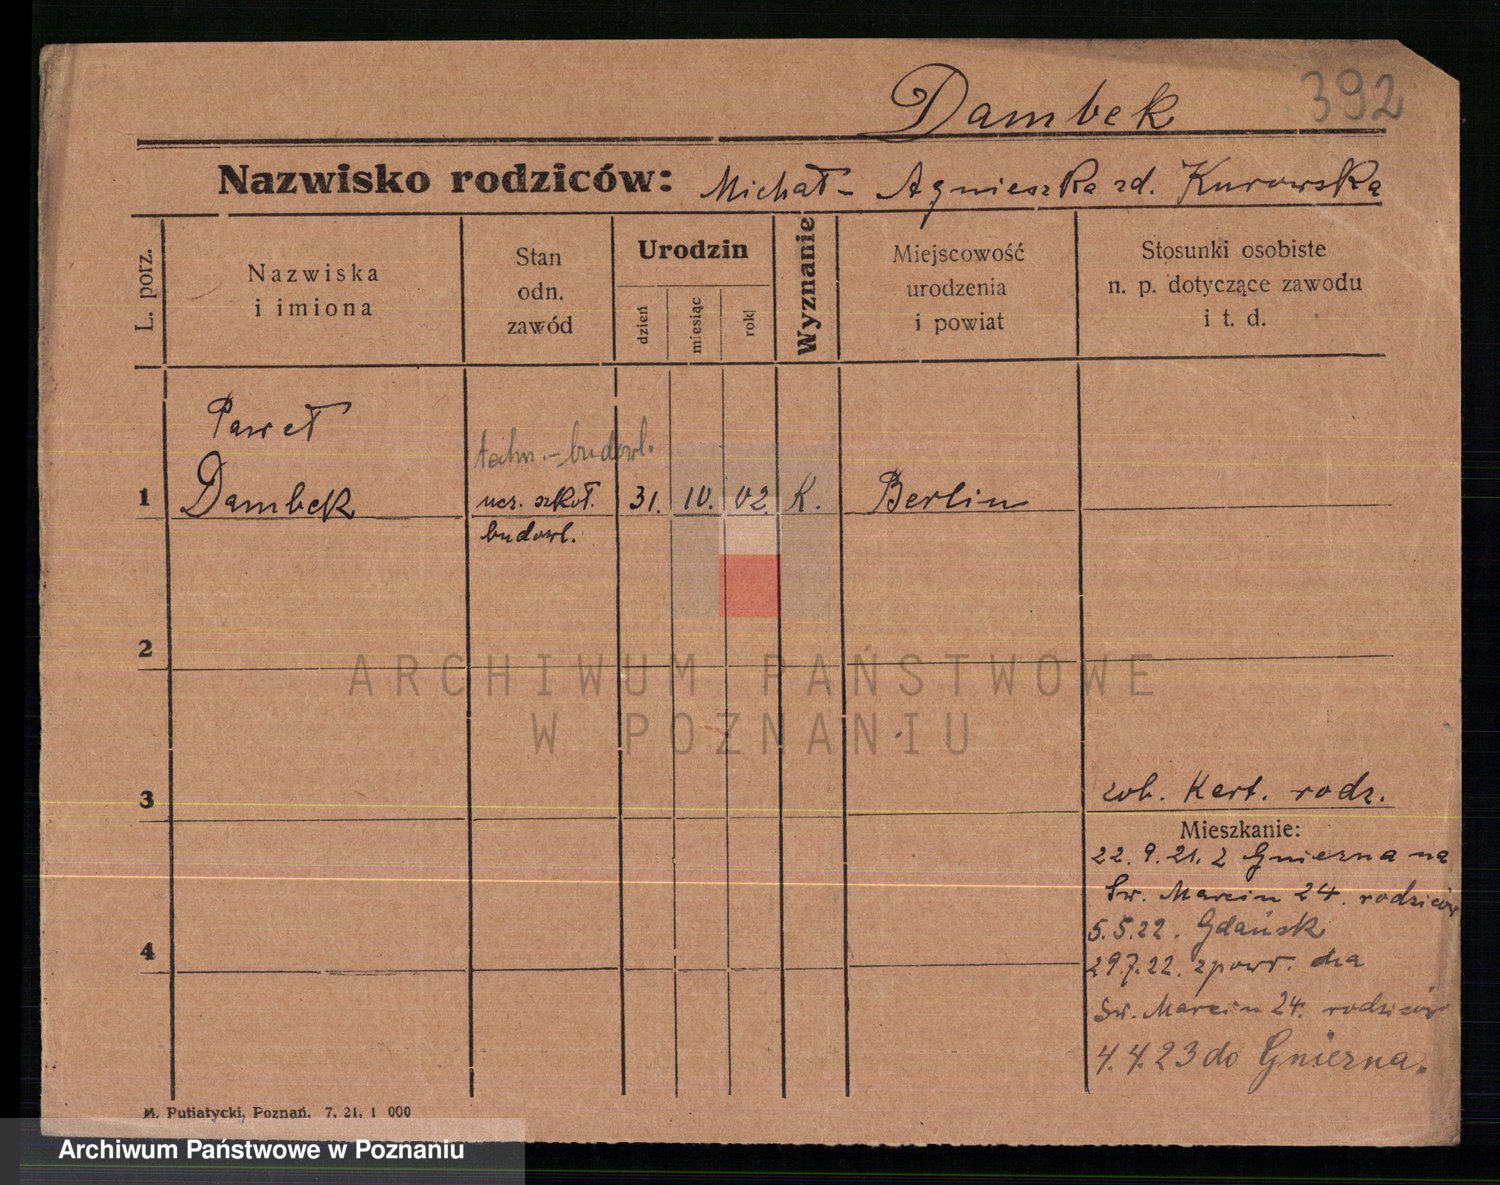 Dambek
392
Nazwisko rodziców: Michał - Agnieszka zd. Kurowska
L. porz.
Nazwiska
i imiona
Stan
odn.
zawód
Urodzin
dzień
miesiąc
rok
Wyznanie
Miejscowość
urodzenia
i powiat
Stosunki osobiste
n. p. dotyczące zawodu
i t. d.
Paweł
techn. - budowl.
1 Dambek ucz. szkoł. 31. IV. 02. K. Berlin
budowl.
2
ARCHIWUM PAŃSTWOWE
W POZNANIU
3
zob. Kart. rodz.
Mieszkanie:
22. 9. 21. z Gniezna na
Św. Marcin 24. rodziców
5. 5. 22. Gdańsk
4
29.7.22. zpowr. na
Św. Marcin 24. rodziców
4. 4. 23 do Gniezna.
M. Putiatycki, Poznań. 7. 21. 1 000
Archiwum Państwowe w Poznaniu